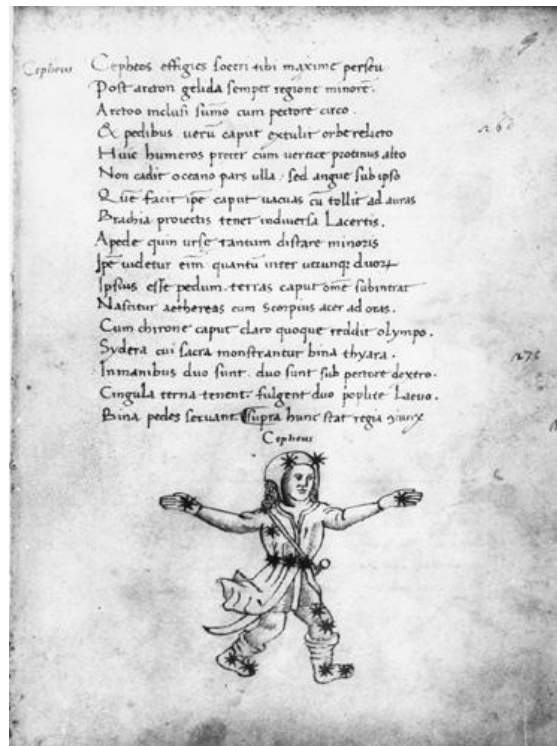 Cepheus
Cepheos effigies soceri tibi maxime perseu
Post arcton gelida semper regione minore.
Arctoo inclusi sumo cum pectore circo.
pedibus caput extulit orbe relicto
Huic humeros preter cum vertice protinus alto
Non cadit oceano pars ulla. sed angue sub ipso
Que facit ipe caput uacuas cu tollit ad auras
Brachia proiectis tenet indiversa Lacertis.
Apede quin urse tantum distare minoris
Ipe uidetur eim quantu inter
Ipsius esse pedum. terras caput ome subintrat
Nascitur aethereas cum Scorpius acer ad oras.
Cum chirone caput claro quoque reddit olympo.
Sydera cui sacra monstrantur bina thyara.
Inmanibus duo sunt. duo sunt sub pectore dextro.
Cingula terna tenent. fulgent duo poplite Laevo.
Bina pedes servant. supra hunc stat regia
Cepheus